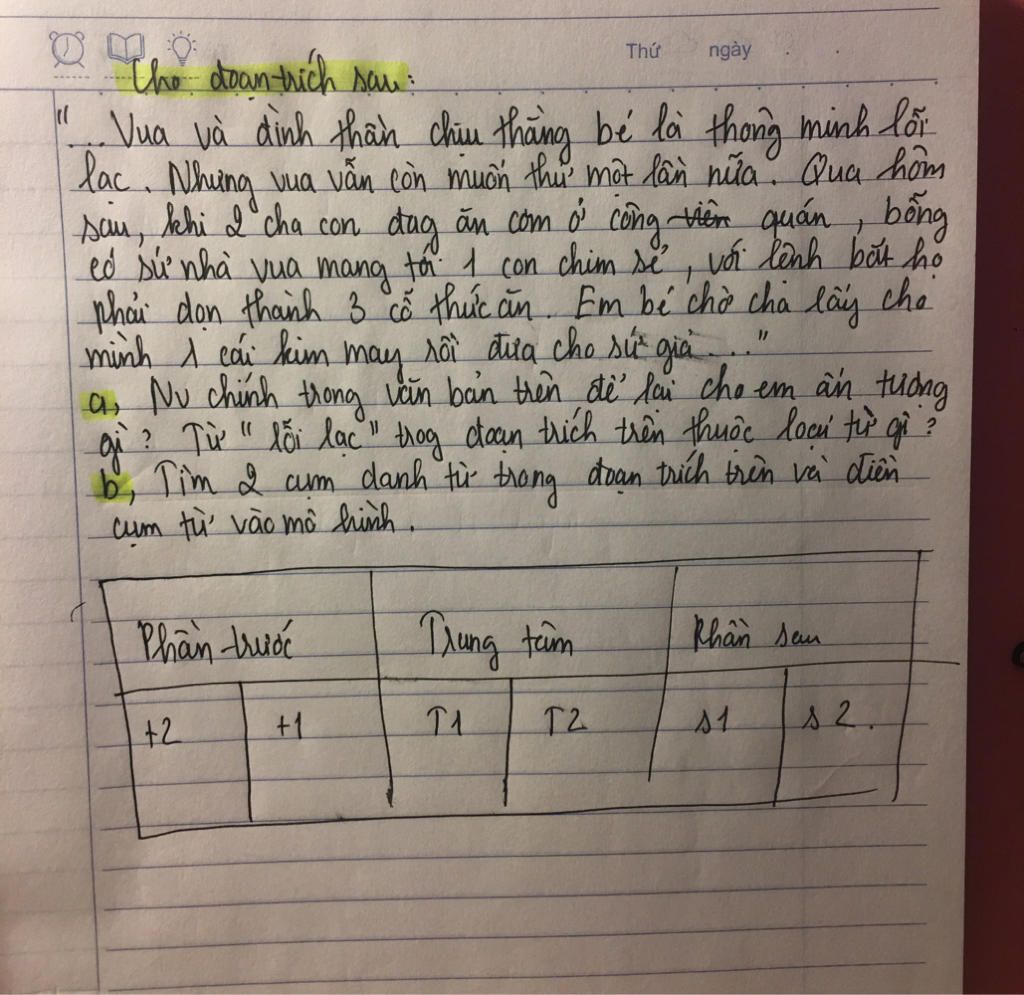 Thứ ngày
Cho đoạn trích sau:
"... Vua và đình thần chịu thằng bé là thông minh lỗi
lạc. Nhưng vua vẫn còn muốn thử một lần nữa. Qua hôm
sau, khi 2 cha con đag ăn cơm ở công viên quán, bỗng
có sứ nhà vua mang tới 1 con chim sẻ, với lệnh bắt họ
phải dọn thành 3 cỗ thức ăn. Em bé chờ cha lấy cho
mình 1 cái kim may rồi đưa cho sứ giả..."
a, Nv chính trong văn bản trên để lại cho em ấn tượng
gì? Từ "lỗi lạc" trog đoạn trích trên thuộc loại từ gì?
b, Tìm 2 cụm danh từ trong đoạn trích trên và điền
cụm từ vào mô hình.
Phần trước Trung tâm Phần sau
t2 t1 T1 T2 s1 s2.